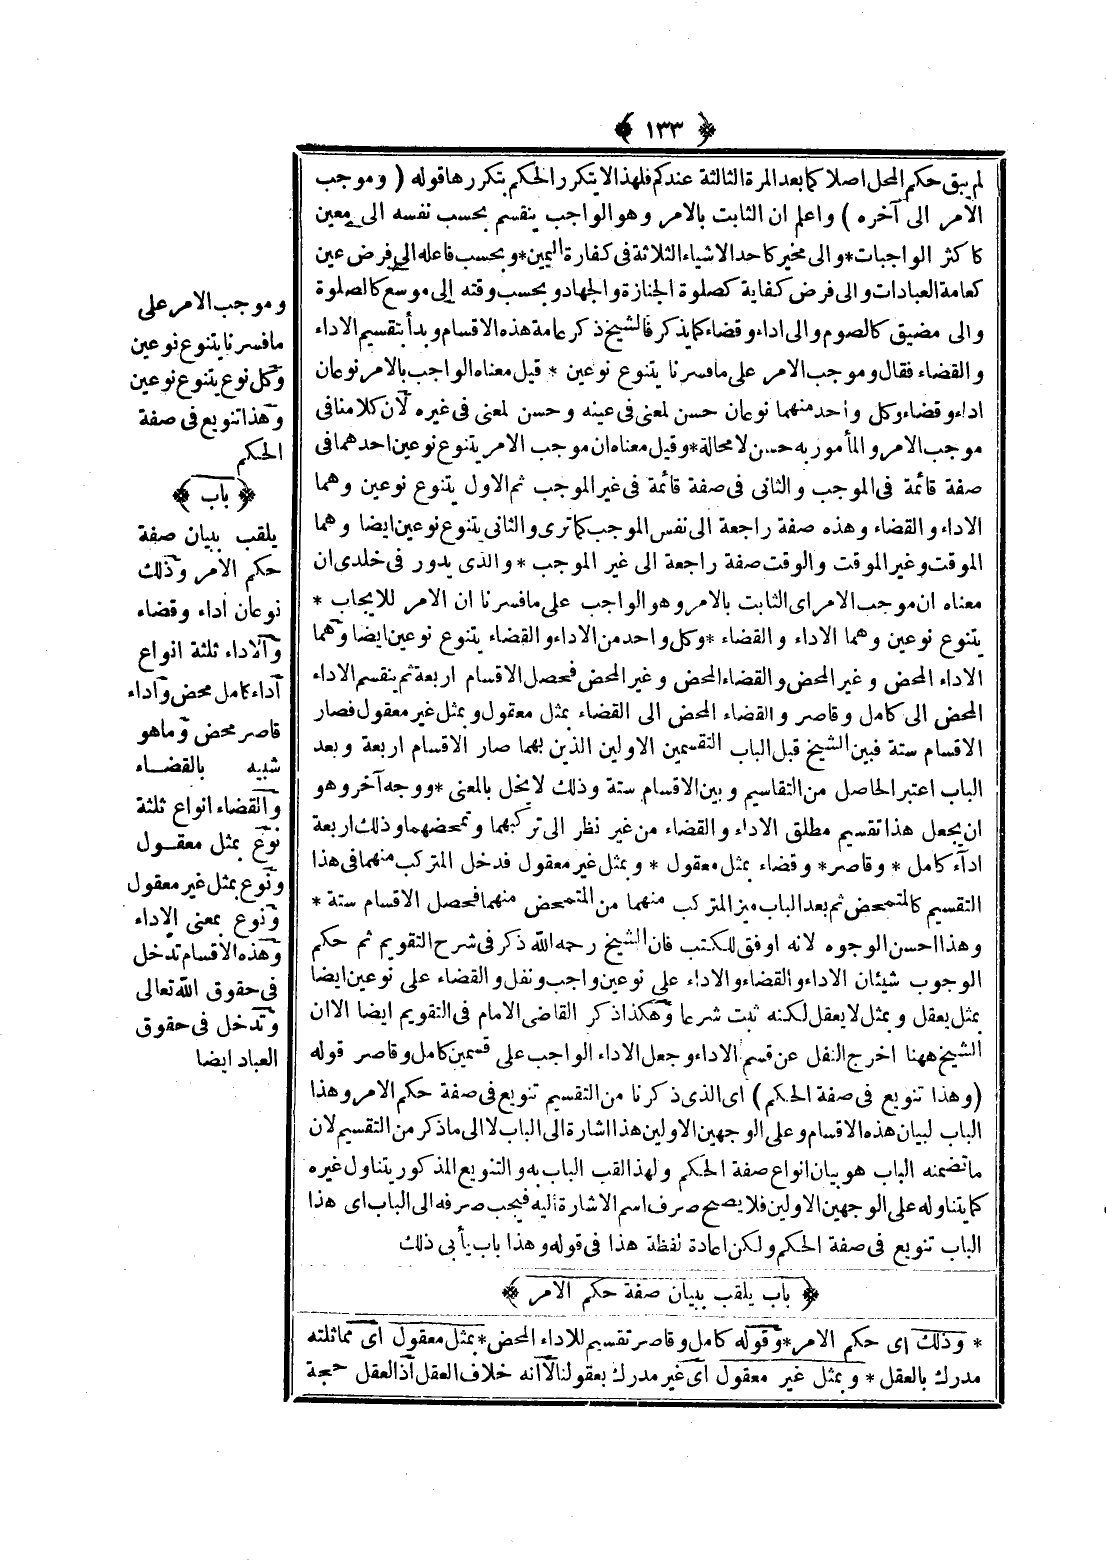 ﴿ ١٣٣ ﴾
لم يبق حكم المحل اصلا كما بعد المرة الثالثة عندكم فلهذا لا يتكرر الحكم بتكررها قوله ( وموجب
الامر الى آخره ) واعلم ان الثابت بالامر وهو الواجب ينقسم بحسب نفسه الى معين
كاكثر الواجبات * والى مخير كاحد الاشياء الثلاثة فى كفارة اليمين * وبحسب فاعله الى فرض عين
كعامة العبادات والى فرض كفاية كصلوة الجنازة والجهاد وبحسب وقته الى موسع كالصلوة
والى مضيق كالصوم والى اداء وقضاء كما يذكر فالشيخ ذكر عامة هذه الاقسام وبدأ بتقسيم الاداء
والقضاء فقال وموجب الامر على ما فسرنا يتنوع نوعين * قيل معناه الواجب بالامر نوعان
اداء وقضاء وكل واحد منهما نوعان حسن لمعنى فى عينه وحسن لمعنى فى غيره لان كلامنا فى
موجب الامر والمأمور به حسن لا محالة * وقيل معناه ان موجب الامر يتنوع نوعين احدهما فى
صفة قائمة فى الموجب والثانى فى صفة قائمة فى غير الموجب ثم الاول يتنوع نوعين وهما
الاداء والقضاء وهذه صفة راجعة الى نفس الموجب كما ترى والثانى يتنوع نوعين ايضا وهما
الموقت وغير الموقت والوقت صفة راجعة الى غير الموجب * والذى يدور فى خلدى ان
معناه ان موجب الامر اى الثابت بالامر وهو الواجب على ما فسرنا ان الامر للايجاب *
يتنوع نوعين وهما الاداء والقضاء * وكل واحد من الاداء والقضاء يتنوع نوعين ايضا وهما
الاداء المحض وغير المحض والقضاء المحض وغير المحض فحصل الاقسام اربعة ثم ينقسم الاداء
المحض الى كامل وقاصر والقضاء المحض الى القضاء بمثل معقول وبمثل غير معقول فصار
الاقسام ستة فبين الشيخ قبل الباب التقسيمين الاولين الذين بهما صار الاقسام اربعة وبعد
الباب اعتبر الحاصل من التقاسيم وبين الاقسام ستة وذلك لا يخل بالمعنى * ووجه آخر وهو
ان يجعل هذا تقسيم مطلق الاداء والقضاء من غير نظر الى تركبهما وتمحضهما وذلك اربعة
اداء كامل * وقاصر * وقضاء بمثل معقول * وبمثل غير معقول فدخل المتركب منهما فى هذا
التقسيم كالمتمحض ثم بعد الباب ميز المتركب منهما من المتمحض منهما فحصل الاقسام ستة *
وهذا احسن الوجوه لانه اوفق للكتب فان الشيخ رحمه الله ذكر فى شرح التقويم ثم حكم
الوجوب شيئان الاداء والقضاء والاداء على نوعين واجب ونفل والقضاء على نوعين ايضا
بمثل يعقل وبمثل لا يعقل لكنه ثبت شرعا وهكذا ذكر القاضى الامام فى التقويم ايضا الا ان
الشيخ ههنا اخرج النفل عن قسم الاداء وجعل الاداء الواجب على قسمين كامل وقاصر قوله
( وهذا تنويع فى صفة الحكم ) اى الذى ذكرنا من التقسيم تنويع فى صفة حكم الامر وهذا
الباب لبيان هذه الاقسام وعلى الوجهين الاولين هذا اشارة الى الباب لا الى ما ذكر من التقسيم لان
ما تضمنه الباب هو بيان انواع صفة الحكم ولهذا لقب الباب به والتنويع المذكور يتناول غيره
كما يتناوله على الوجهين الاولين فلا يصح صرف اسم الاشارة اليه فيجب صرفه الى الباب اى هذا
الباب تنويع فى صفة الحكم ولكن اعادة لفظة هذا فى قوله وهذا باب يأبى ذلك
﴿ باب يلقب ببيان صفة حكم الامر ﴾
* وذلك اى حكم الامر * وقوله كامل وقاصر تقسيم للاداء المحض * بمثل معقول اى مماثلته
مدرك بالعقل * وبمثل غير معقول اى غير مدرك بعقولنا لا انه خلاف العقل اذ العقل حجة
وموجب الامر على
ما فسرنا يتنوع نوعين
وكل نوع يتنوع نوعين
وهذا تنويع فى صفة
الحكم
﴿ باب ﴾
يلقب ببيان صفة
حكم الامر وذلك
نوعان اداء وقضاء
والاداء ثلثة انواع
اداء كامل محض واداء
قاصر محض وما هو
شبيه بالقضاء
والقضاء انواع ثلثة
نوع بمثل معقول
ونوع بمثل غير معقول
ونوع بمعنى الاداء
وهذه الاقسام تدخل
فى حقوق الله تعالى
وتدخل فى حقوق
العباد ايضا